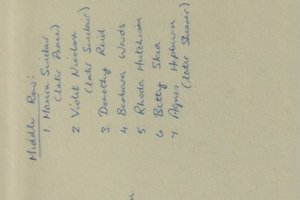 Middle Row:
1. Maura Sinclair
(later Peace)
2 Violet Nicolson
(later Sinclair)
3. Dorothy Reid
4 Barbara Wards
5. Rhoda Hutchison
6. Betty Shea
7. Agnes Hepburn
(later Shearer)